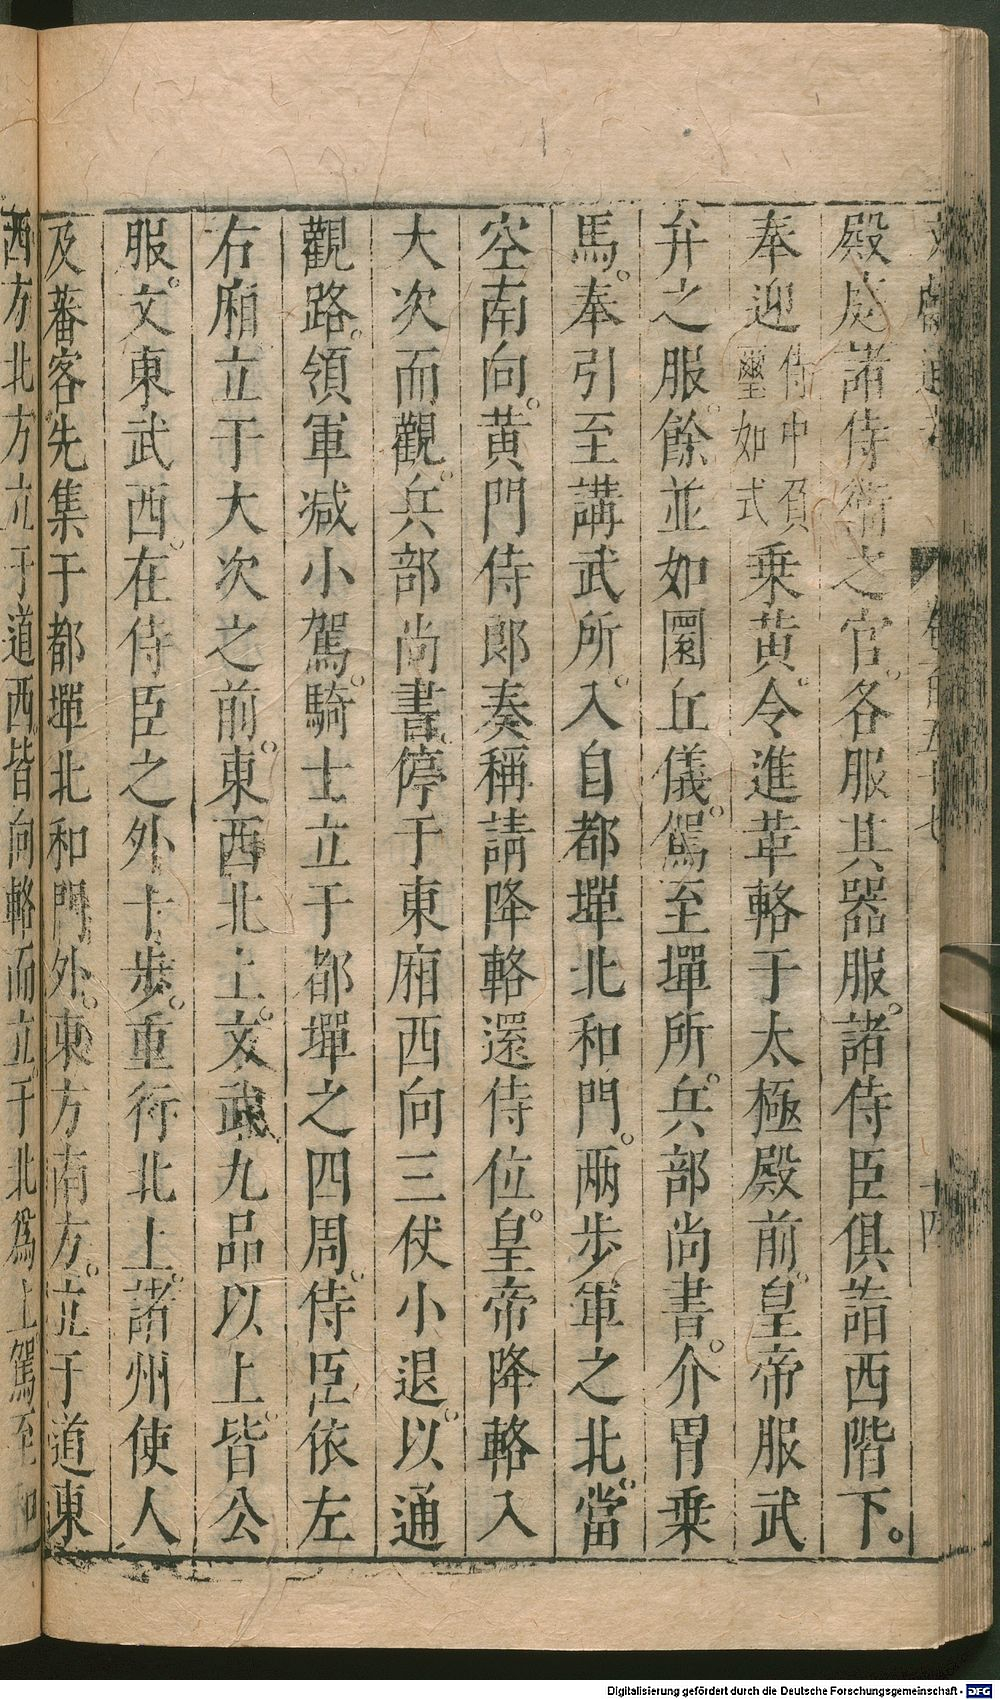 殿庭諸侍衛之官。各服其器服。諸侍臣俱詣西階下。
奉迎侍中負璽如式乗黄。令進革輅于太極殿前。皇帝服武
弁之服。餘並如圜丘儀。駕至墠所。兵部尚書。介胄乗
馬。奉引至講武所。入自都墠北和門。兩步軍之北。當
空南向。黄門侍郎奏稱請降輅還侍位。皇帝降輅入
大次而觀。兵部尚書。停于東廂西向三仗小退。以通
觀路。領軍减小駕。騎士立于都墠之四周。侍臣依左
右廂立于大次之前。東西北上。文武九品以上。皆公
服。文東武西。在侍臣之外十步。重行北上。諸州使人
及蕃客。先集于都墠北和門外。東方南方。立于道東
西方北方立于道西皆向輅而立于北爲上駕至和
十四
Digitalisierung gefördert durch die Deutsche Forschungsgemeinschaft - DFG